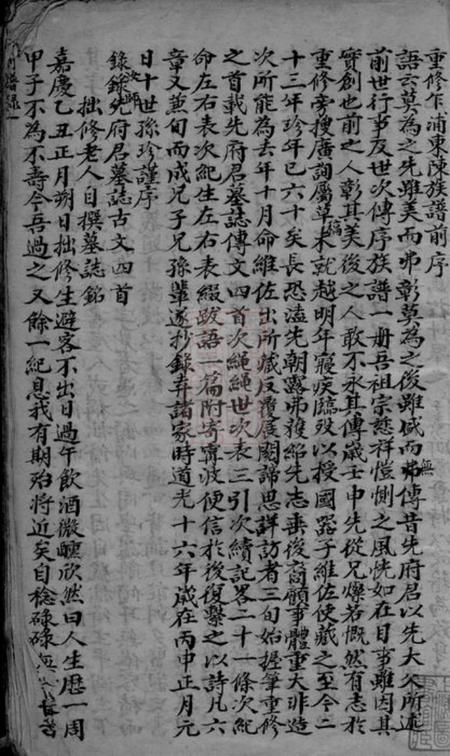 重修乍浦東陳族譜前序
語云莫為之先雖美而弗彰莫為之後雖盛而弗傳昔先府君以先大父所述
無
前世行事及世次傳序族譜一冊吾祖宗慈祥愷惻之風恍如在目事雖因其
實創也前之人彰其美後之人敢不永其傳歲壬申先從兄燦若慨然有志於
重修旁搜廣詢屬草未就越明年寢疾臨歿以授國器子維佐使藏之至今二
稿
十三年珍年已六十矣長恐溘先朝露弗獲紹先志垂後裔顧事體重大非造
次所能為去年十月命維佐出所藏反覆展閱諦思詳訪者三旬始握筆重修
之首載先府君墓誌傳文四首次繩繩世次表三引次續記畧二十一條次紀
命左右表次紀生左右表綴跋語一篇附寄甯波便信於後復繫之以詩凡六
章又兼旬而成兄子兄孫輩遂抄錄弆諸家時道光十六年歲在丙申正月元
日十世孫珍謹序
錄先府君墓誌古文四首
拙修老人自撰墓誌銘
嘉慶乙丑正月朔日拙修生避客不出日過午飲酒微醺欣然曰人生歷一周
甲子不為不壽今吾過之又餘一紀息我有期殆將近矣自稔碌碌無